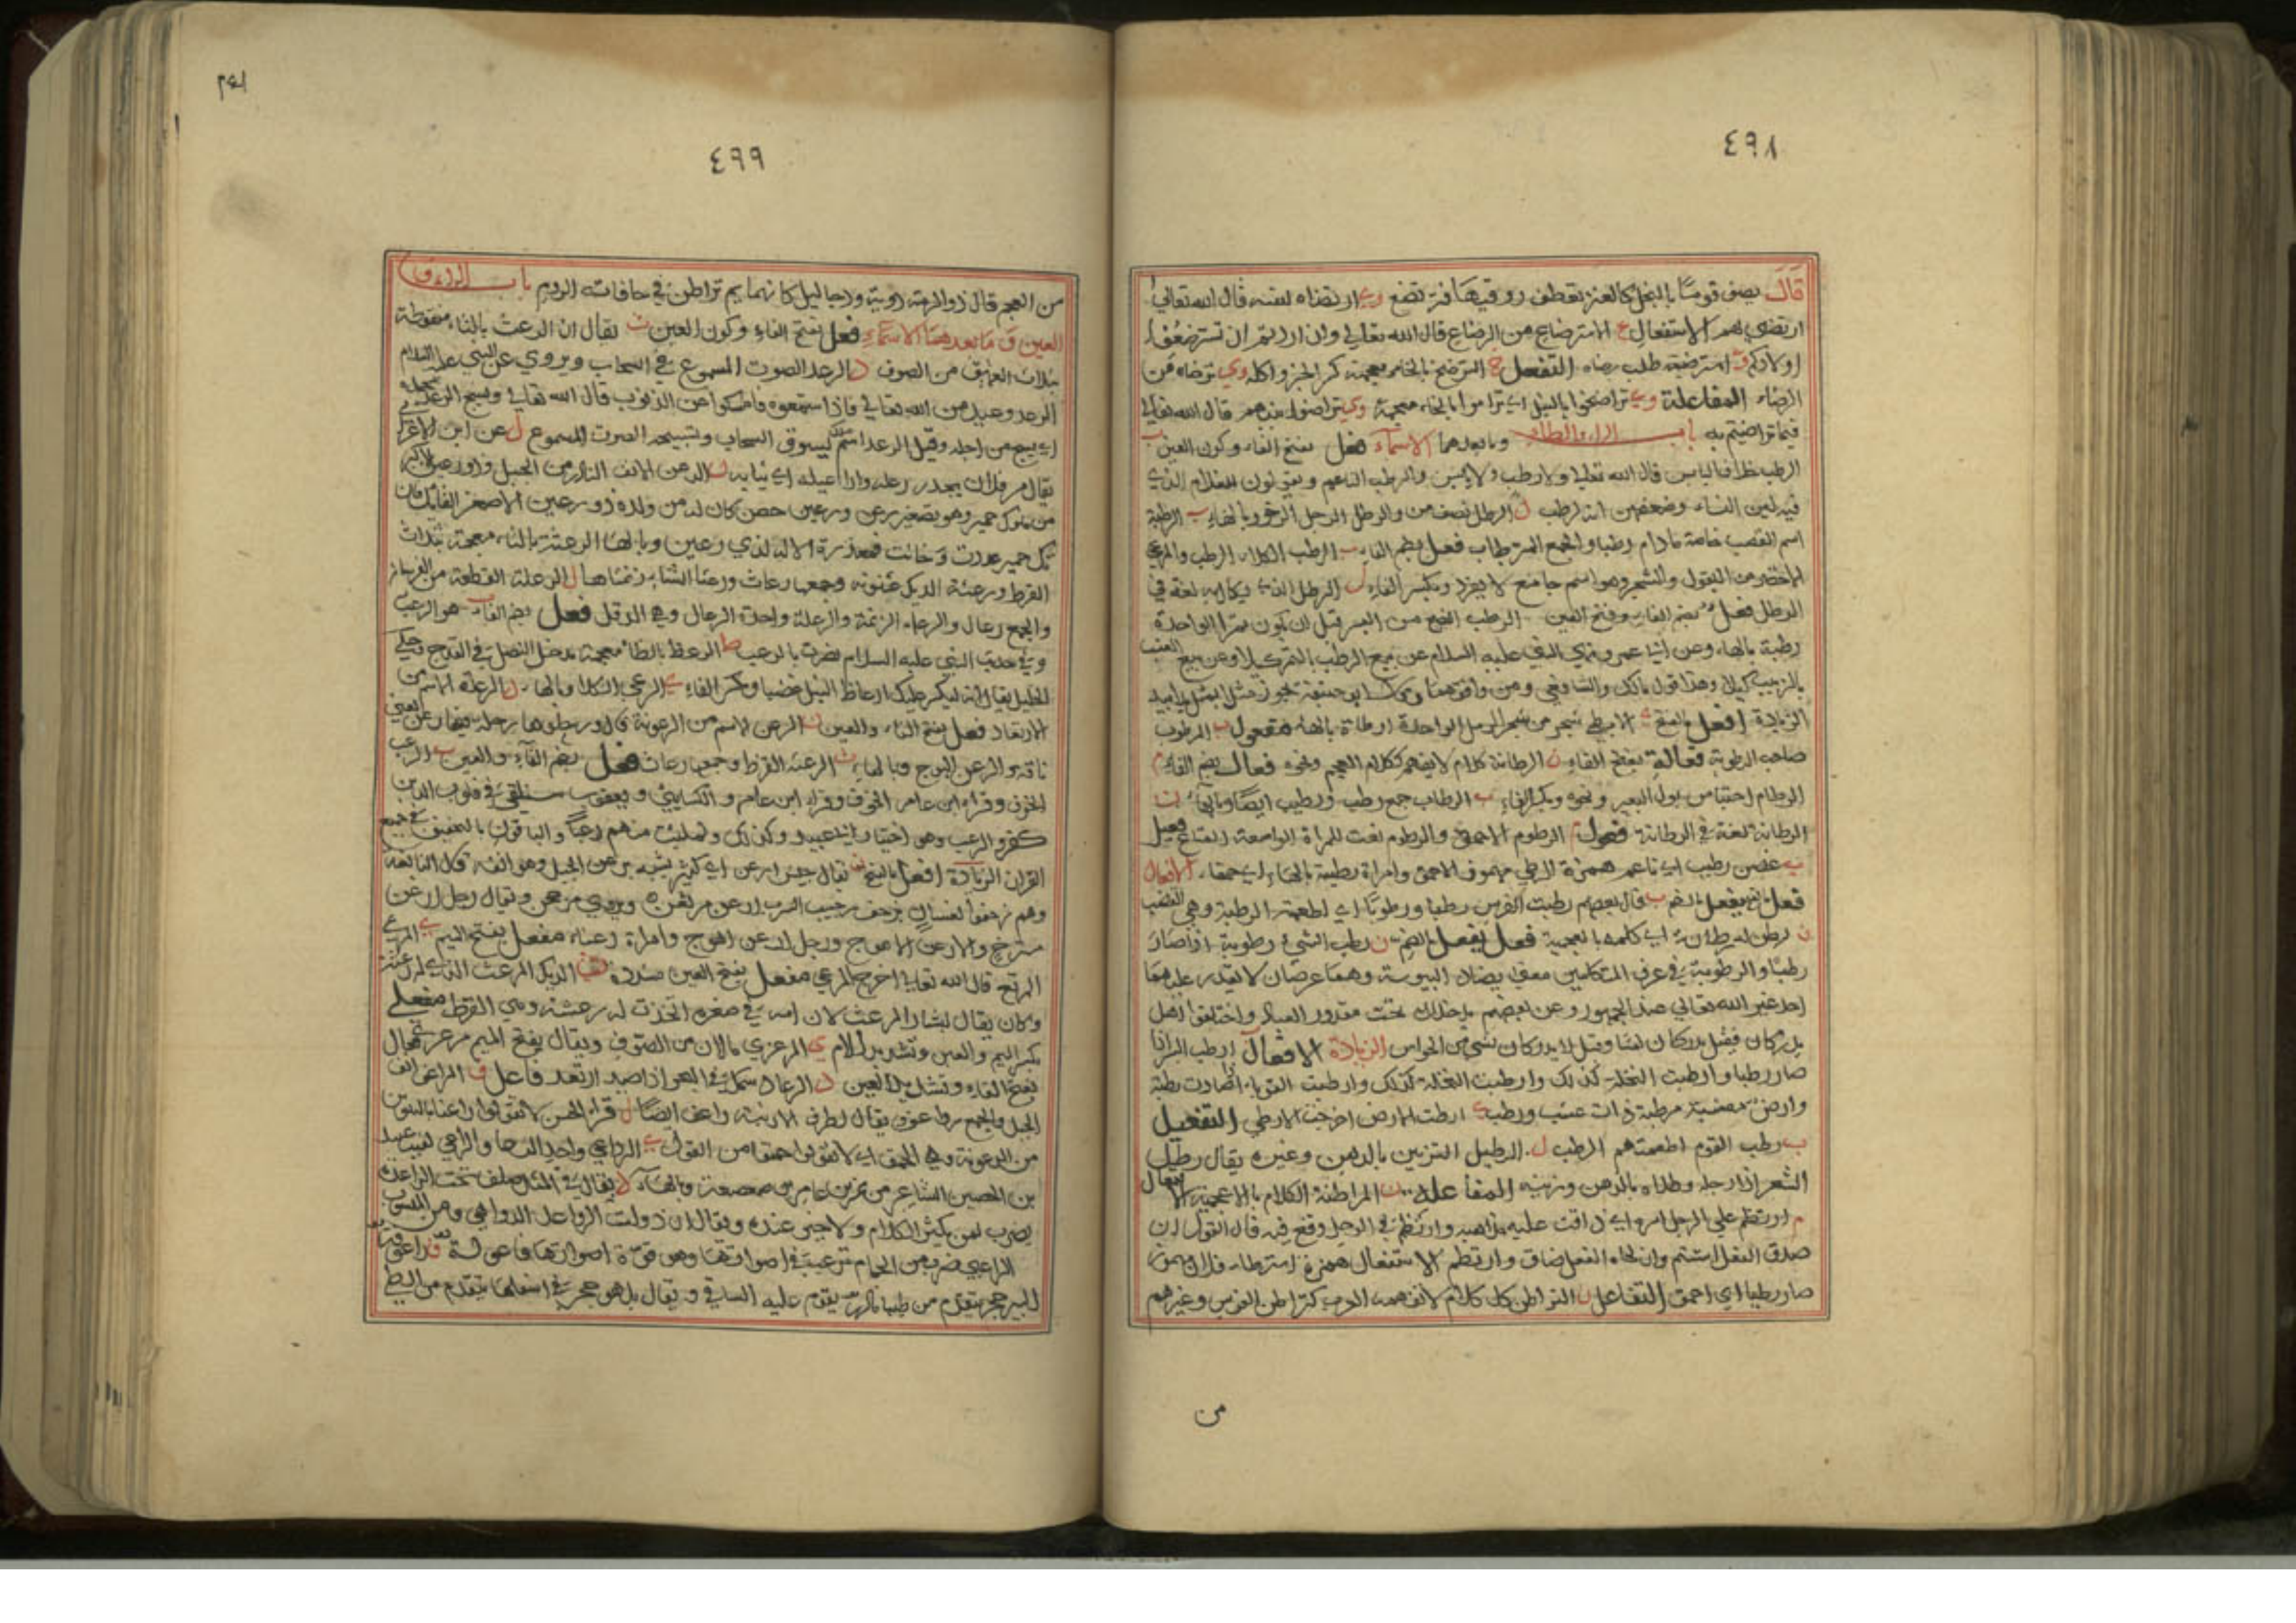 ٤٩٨
قال يصف قومًا بالبخل كالعنز تعطف روقيها فترتضع وي ارتضاه لنفسه قال الله تعالى
ارتضى لهم الاستفعال ع الاسترضاع من الرضاع قال الله تعالى وان اردتم ان تسترضعوا
اولادكم استرضيته طلب رضاه التفعل خ الترضخ بالخاء معجمة كسر الخبز واكله وي ترضاه من
الرضاء المفاعلة تراضخوا بالنبل اي تراموا بالخاء معجمة وي تراضوا بينهم قال الله تعالى
فيما تراضيتم به باب الراء والطاء وما بعدهما الاسماء فعل بفتح الفاء وسكون العين ب
الرطب خلاف اليابس قال الله تعالى ولا رطب ولا يابس والرطب الناعم ويقولون للغلام الذي
فيه لين النساء وضعفهن انه لرطب ل الرطل نصف من والرطل الرجل الرخو وبالهاء ب الرطبة
اسم القضب خاصة مادام رطبا والجمع الرطاب فعل بضم الفاء ب الرطب الكلاء الرطب والمرعى
الاخضر من البقول والشجر وهو اسم جامع لا يفرد وبكسر الفاء ل الرطل الذي يكال به لغة في
الرطل فعل بضم الفاء وفتح العين الرطب النضيج من البسر قبل ان يكون تمرا الواحدة
رطبة بالهاء وعن ابن عمر ونهى النبي عليه السلام عن بيع الرطب بالتمر كيلا وعن بيع العنب
بالزبيب كيلا وهذا قول مالك والشافعي ومن وافقهما وقال ابو حنيفة يجوز مثلا بمثل يدا بيد
الزيادة افعل بالفتح الارطى شجر من شجر الرمل الواحدة ارطاة بالهاء مفعول ب المرطوب
صاحب الرطوبة فعالة بفتح الفاء ن الرطانة كلام لا يفهم ككلام العجم ونحوه فعال بضم الفاء م
الرطام احتباس بول البعير ونحوه وبكسر الفاء ب الرطاب جمع رطب ورطيب ايضا وبالهاء ن
الرطانة لغة في الرطانة فعول م الرطوم الاحمق والرطوم نعت للمراة الواسعة المتاع فعيل
ب غصن رطيب اي ناعم همزة الرطي مهموز الاحمق وامراة رطية بالهاء اي حمقاء الافعال
فعل بالفتح يفعل بالضم ب قال بعضهم رطبت الفرس رطبا ورطوبا اي اطعمته الرطبة وهي القضب
ن رطن له رطانة اي كلمه بالعجمية فعل يفعل بالضم رطب الشيء رطوبة اذا صار
رطبا والرطوبة في عرف المتكلمين معنى يضاد اليبوسة وهما عرضان لا يقدر عليهما
احد غير الله تعالى عند الجمهور وعن بعضهم يدخلان تحت مقدور العباد واختلفوا هل
يدركان فقيل يدركان لمسا وقيل لا يدركان بشيء من الحواس الزيادة الافعال ارطب البسر اذا
صار رطبا وارطبت النخلة كذلك وارطبت النخلة كذلك وارطبت القوباء اذا صارت رطبة
وارض معشبة مرطبة ذات عشب ورطب ي ارطت الارض اخرجت الارطى التفعيل
ب رطب القوم اطعمتهم الرطب ل الرطيل التزيين بالدهن وغيره يقال رطل
الشعر اذا رجله وطلاه بالدهن وزينه المفاعلة ن المراطنة الكلام بالاعجمية الافتعال
م ارتطم على الرجل امره اي ضاقت عليه مذاهبه وارتطم في الوحل وقع فيه قال القول ان
صدق الفعل استتم وان لحاه الفعل ضاق وارتطم الاستفعال همزة استرطاء فلان مهموز
صار رطيا اي احمق التفاعل ن التراطن كل كلام لا تفهمه العرب كتراطن الفرس وغيرهم
من
٤٩٩
من العجم قال ذو الرمة دوية ودجا ليل كانهما يم تراطن في حافاته الروم باب الراء و
العين وما بعدهما الاسماء فعل بفتح الفاء وسكون العين ث يقال ان الرعث بالثاء منقوطة
بثلاث العهن من الصوف د الرعد الصوت المسموع في السحاب ويروى عن النبي عليه السلام
الرعد وعيد من الله تعالى فاذا سمعتموه فامسكوا عن الذنوب قال الله تعالى ويسبح الرعد بحمده
اي يسبح من اجله وقيل الرعد اسم ملك يسوق السحاب وتسبيحه الصوت المسموع ل عن ابن الاعرابي
يقال مر فلان يجر رعله واراعيله اي ثيابه ن الرعن الانف النادر من الجبل وذو رعين الاكبر
من ملوك حمير وهو تصغير رعن ورعين حصن كان له من ولده ذو رعين الاصغر القائل فان
تك حمير غدرت وخانت فمعذرة الاله لذي رعين وبالهاء الرعثة بالثاء معجمة بثلاث
القرط ورعثة الديك عثنونه وجمعها رعاث ورعثا الشاة زنمتاها ل الرعلة القطعة من الفرسان
والجمع رعال والرعلة الزنمة والرعلة واحدة الرعال وهي الدقل فعل بضم الفاء ب هو الرعب
وفي حديث النبي عليه السلام نصرت بالرعب ظ الرعظ بالظاء معجمة مدخل النصل في القدح وحكى
الخليل يقال انه ليكسر عليك ارعاظ النبل غضبا وبكسر الفاء ي الرعي الكلا وبالهاء الرعدة الاسم من
الارتعاد فعل بفتح الفاء والعين ن الرعن الاسم من الرعونة
ناقة والرعن الهوج وبالهاء ث الرعثة القرط وجمعها رعاث فعل بضم الفاء والعين ب الرعب
الخوف وقراء ابن عامر الخوف وقراء ابن عامر والكسائي ويعقوب سنلقي في قلوب الذين
كفروا الرعب وهو اختيار ابي عبيد وكذلك ولملئت منهم رعبا والباقون بالتخفيف في جميع
القران الزيادة افعل بالفتح ن يقال جيش ارعن اي كثير يشبه برعن الجبل وهو انفه قال النابغة
وهم زحفوا لغسان بزحف رحيب السرب ارعن مرثعن ويروى مرجحن ويقال رجل ارعن
مسترخ والارعن الاهوج ورجل ارعن اهوج وامراة رعناء مفعل بفتح الميم ي المرعى
المرتع قال الله تعالى اخرج المرعى مفعل بفتح العين مشددة ث الديك المرعث الذي له رعثة
وكان يقال لبشار المرعث لان امه في صغره اتخذت له رعثة وهي القرط مفعلى
بكسر الميم والعين وتشديد اللام ي المرعزى ما لان من الصوف ويقال بفتح الميم مرعزى فعال
بفتح الفاء وتشديد العين د الرعاد سمك في البحر اذا صيد ارتعد فاعل ف الراعف انف
الجبل والجمع رواعف يقال لطرف الارنبة راعف ايضا ل قراء الحسن لا تقولوا راعنا بالتنوين
من الرعونة وهي الحمق اي لا تقولوا حمقا من القول ي الراعي واحد الرعاء والراعي لقب عبيد
بن الحصين الشاعر من نمير بن عامر بن صعصعة وبالهاء د يقال في المثل صلف تحت الراعدة
يضرب لمن يكثر الكلام ولا خير عنده ويقال ان ذوات الرواعد الدواهي ومن المنسوب
الراعبي ضرب من الحمام ترعب في اصواتها وهو قوة اصواتها فاعولة ف راعوفة
البير حجر يتقدم من طيها نادر يقوم عليه الساقي ويقال بل هو حجر في اسفلها يتقدم من الطي